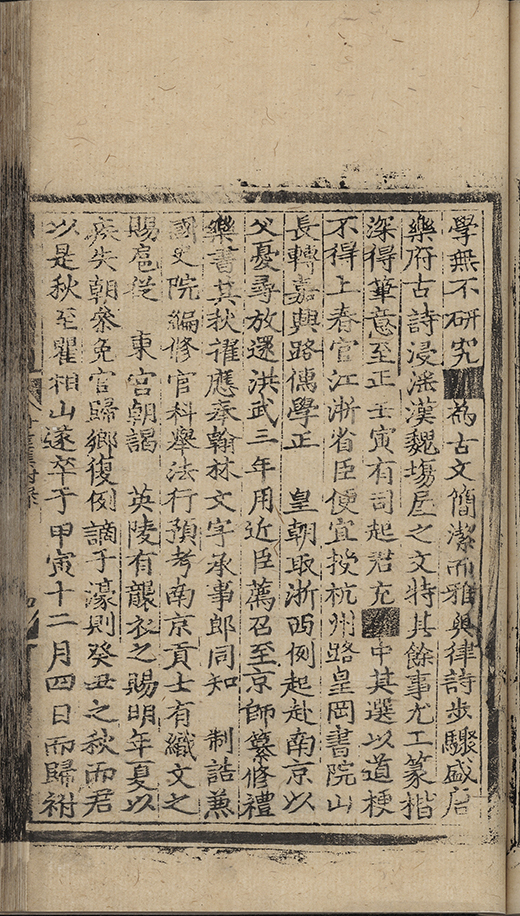 學無不研究 為古文簡潔而雅奧律詩步驟盛唐
樂府古詩浸滛漢魏塲屋之文特其餘事尤工篆楷
深得筆意至正壬寅有司起君充 中其選以道梗
不得上春官江浙省臣便宜授杭州路皇岡書院山
長轉嘉興路儒學正 皇朝取浙西例起赴南京以
父憂尋放還洪武三年用近臣薦召至京師纂修禮
樂書其秋擢應奉翰林文字承事郎同知 制誥兼
國史院編修官科舉法行預考南京貢士有織文之
賜扈從 東宮朝謁 英陵有襲衣之賜明年夏以
疾失朝叅免官歸鄉復例謫于濠則癸丑之秋而君
以是秋至瞿相山遂卒于甲寅十二月四日而歸祔